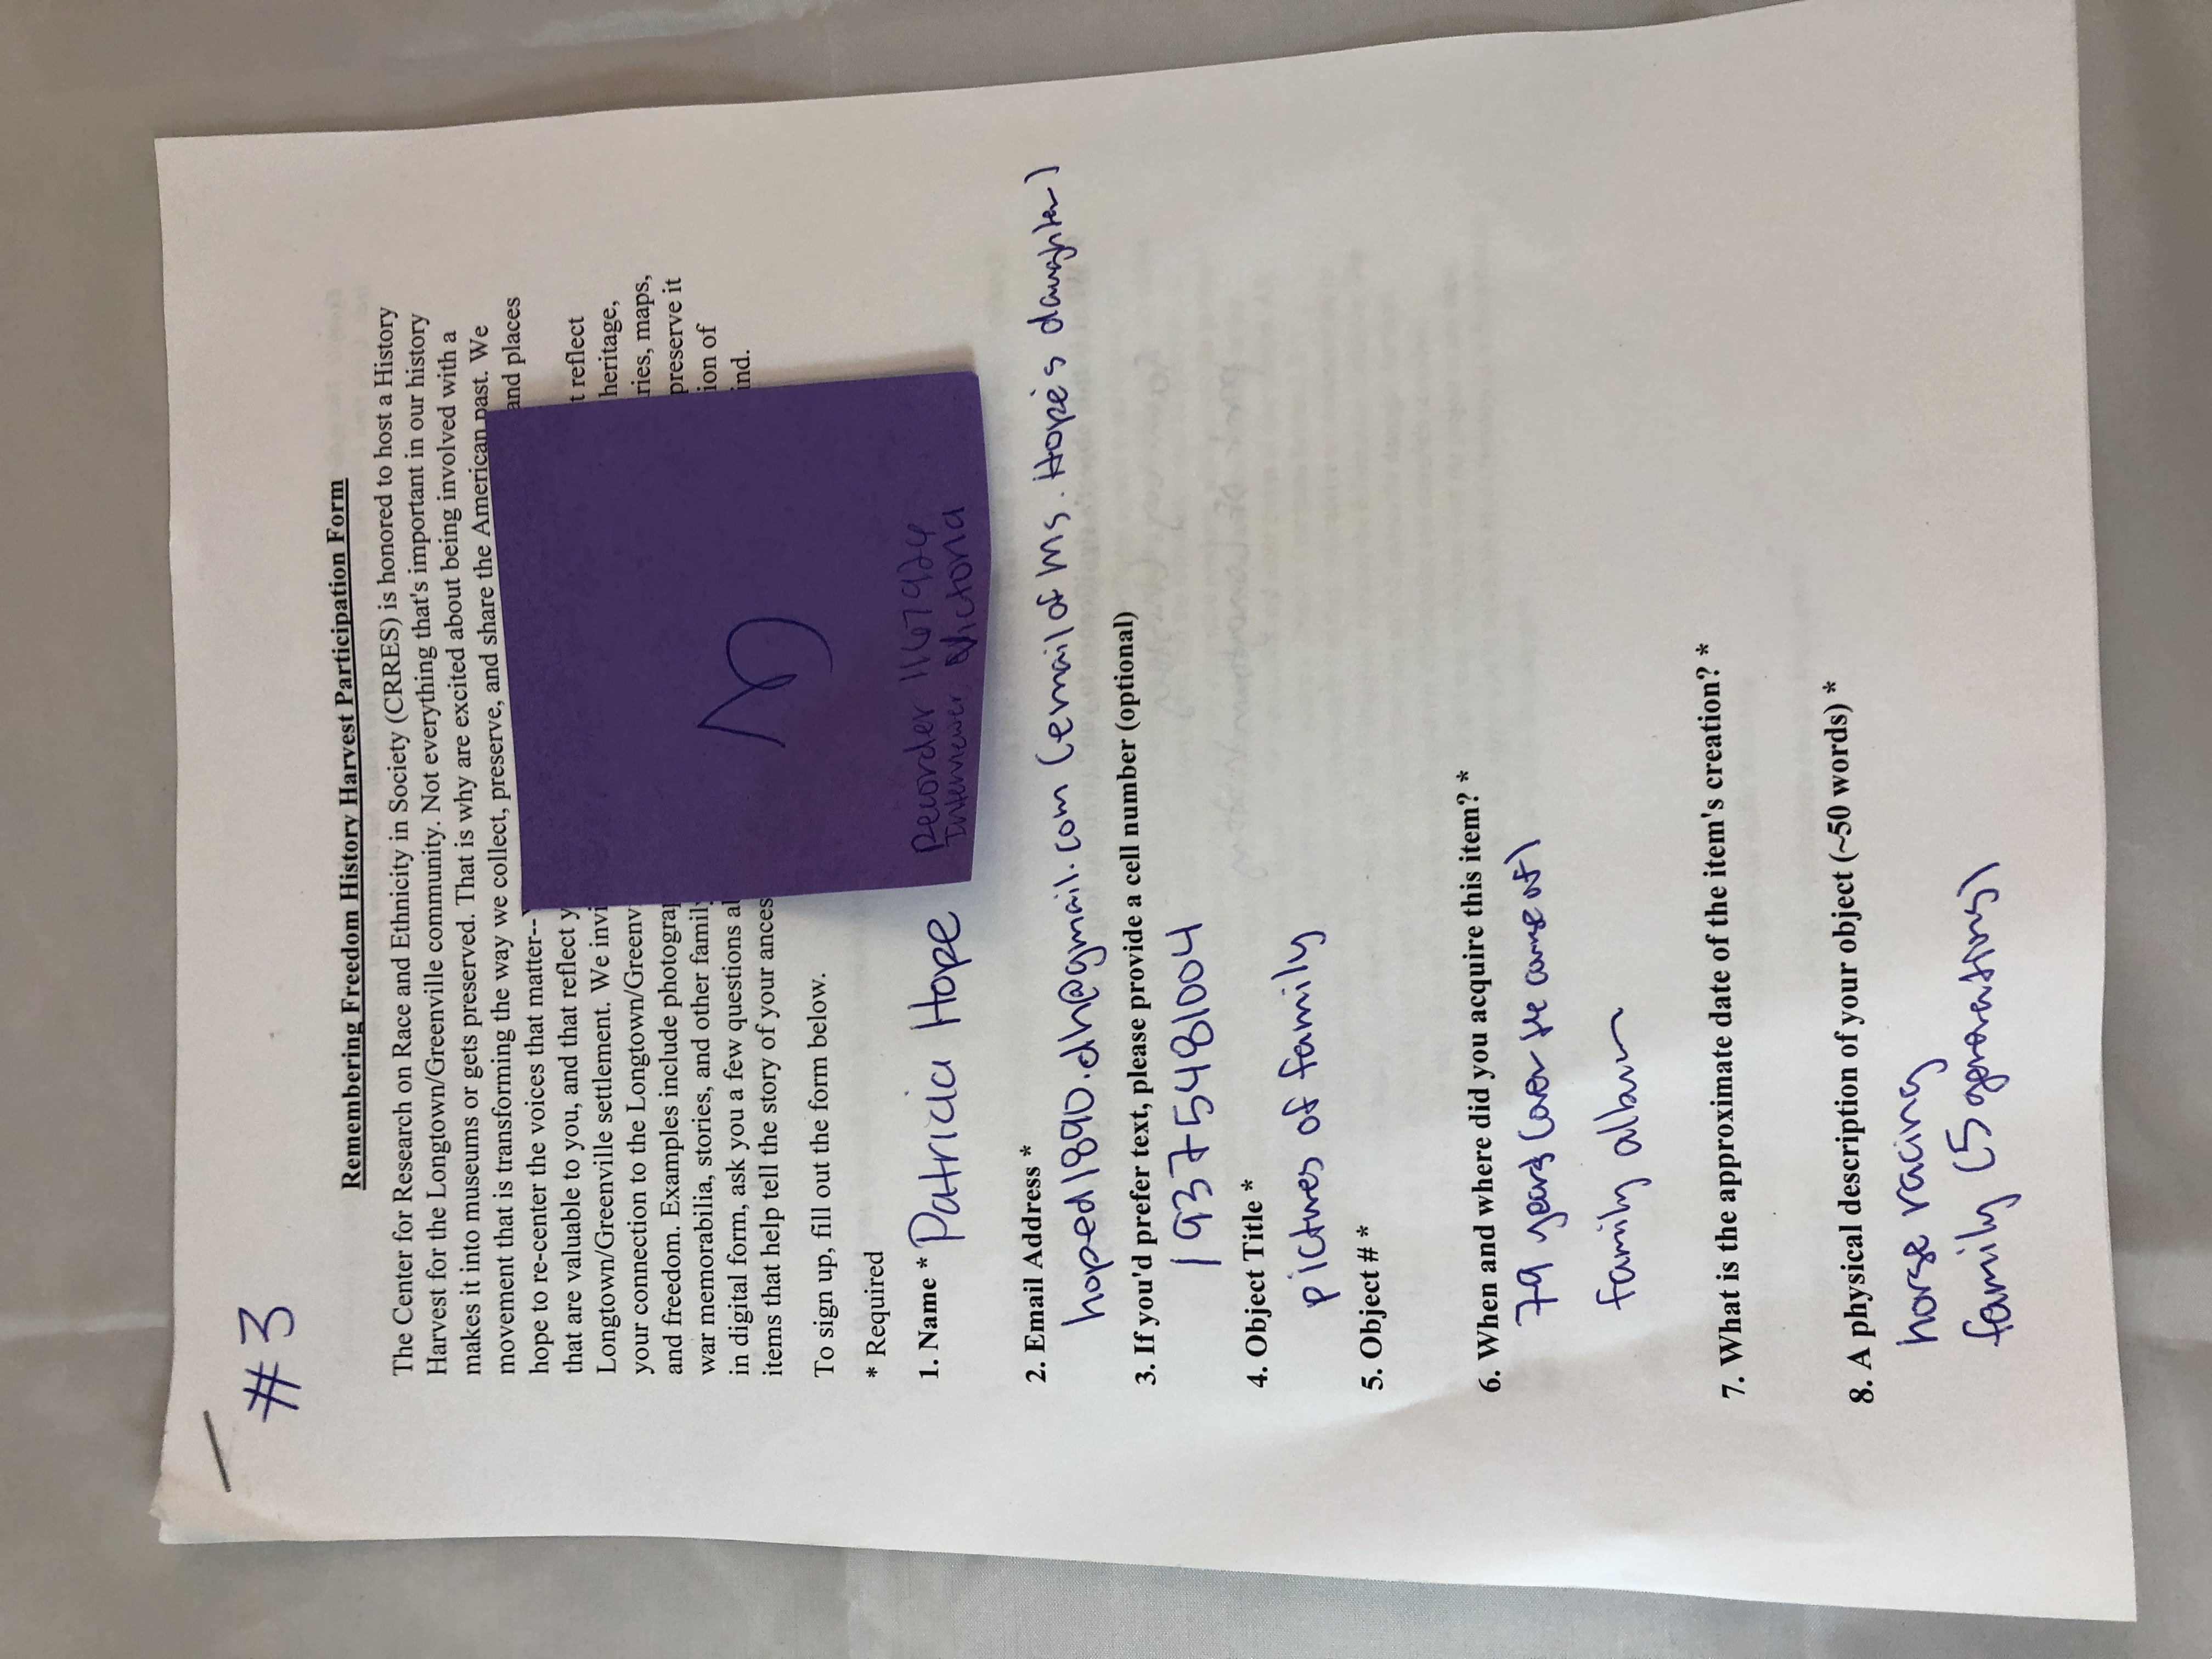 #3
Remembering Freedom History Harvest Participation Form
The Center for Research on Race and Ethnicity in Society (CRRES) is honored to host a History
Harvest for the Longtown/Greenville community. Not everything that's important in our history
makes it into museums or gets preserved. That is why are excited about being involved with a
movement that is transforming the way we collect, preserve, and share the American past. We
hope to re-center the voices that matter-- and places
that are valuable to you, and that reflect
Longtown/Greenville settlement. We t reflect
your connection to the heritage,
and freedom. Examples include ries, maps,
war memorabilia, stories, and other preserve it
in digital form, ask you a few questions ion of
items that help tell the story of your ind.
To sign up, fill out the form below.
* Required
1. Name * Patricia Hope
Recorder 1167924
Interviewer Victoria
2. Email Address *
hoped1890.dh@gmail.com (email of Ms. Hope's daughter)
3. If you'd prefer text, please provide a cell number (optional)
19375481004
4. Object Title *
pictures of family
5. Object # *
6. When and where did you acquire this item? *
79 years (over the course of)
family album
7. What is the approximate date of the item's creation? *
8. A physical description of your object (~50 words) *
horse racing
family (5 generations)